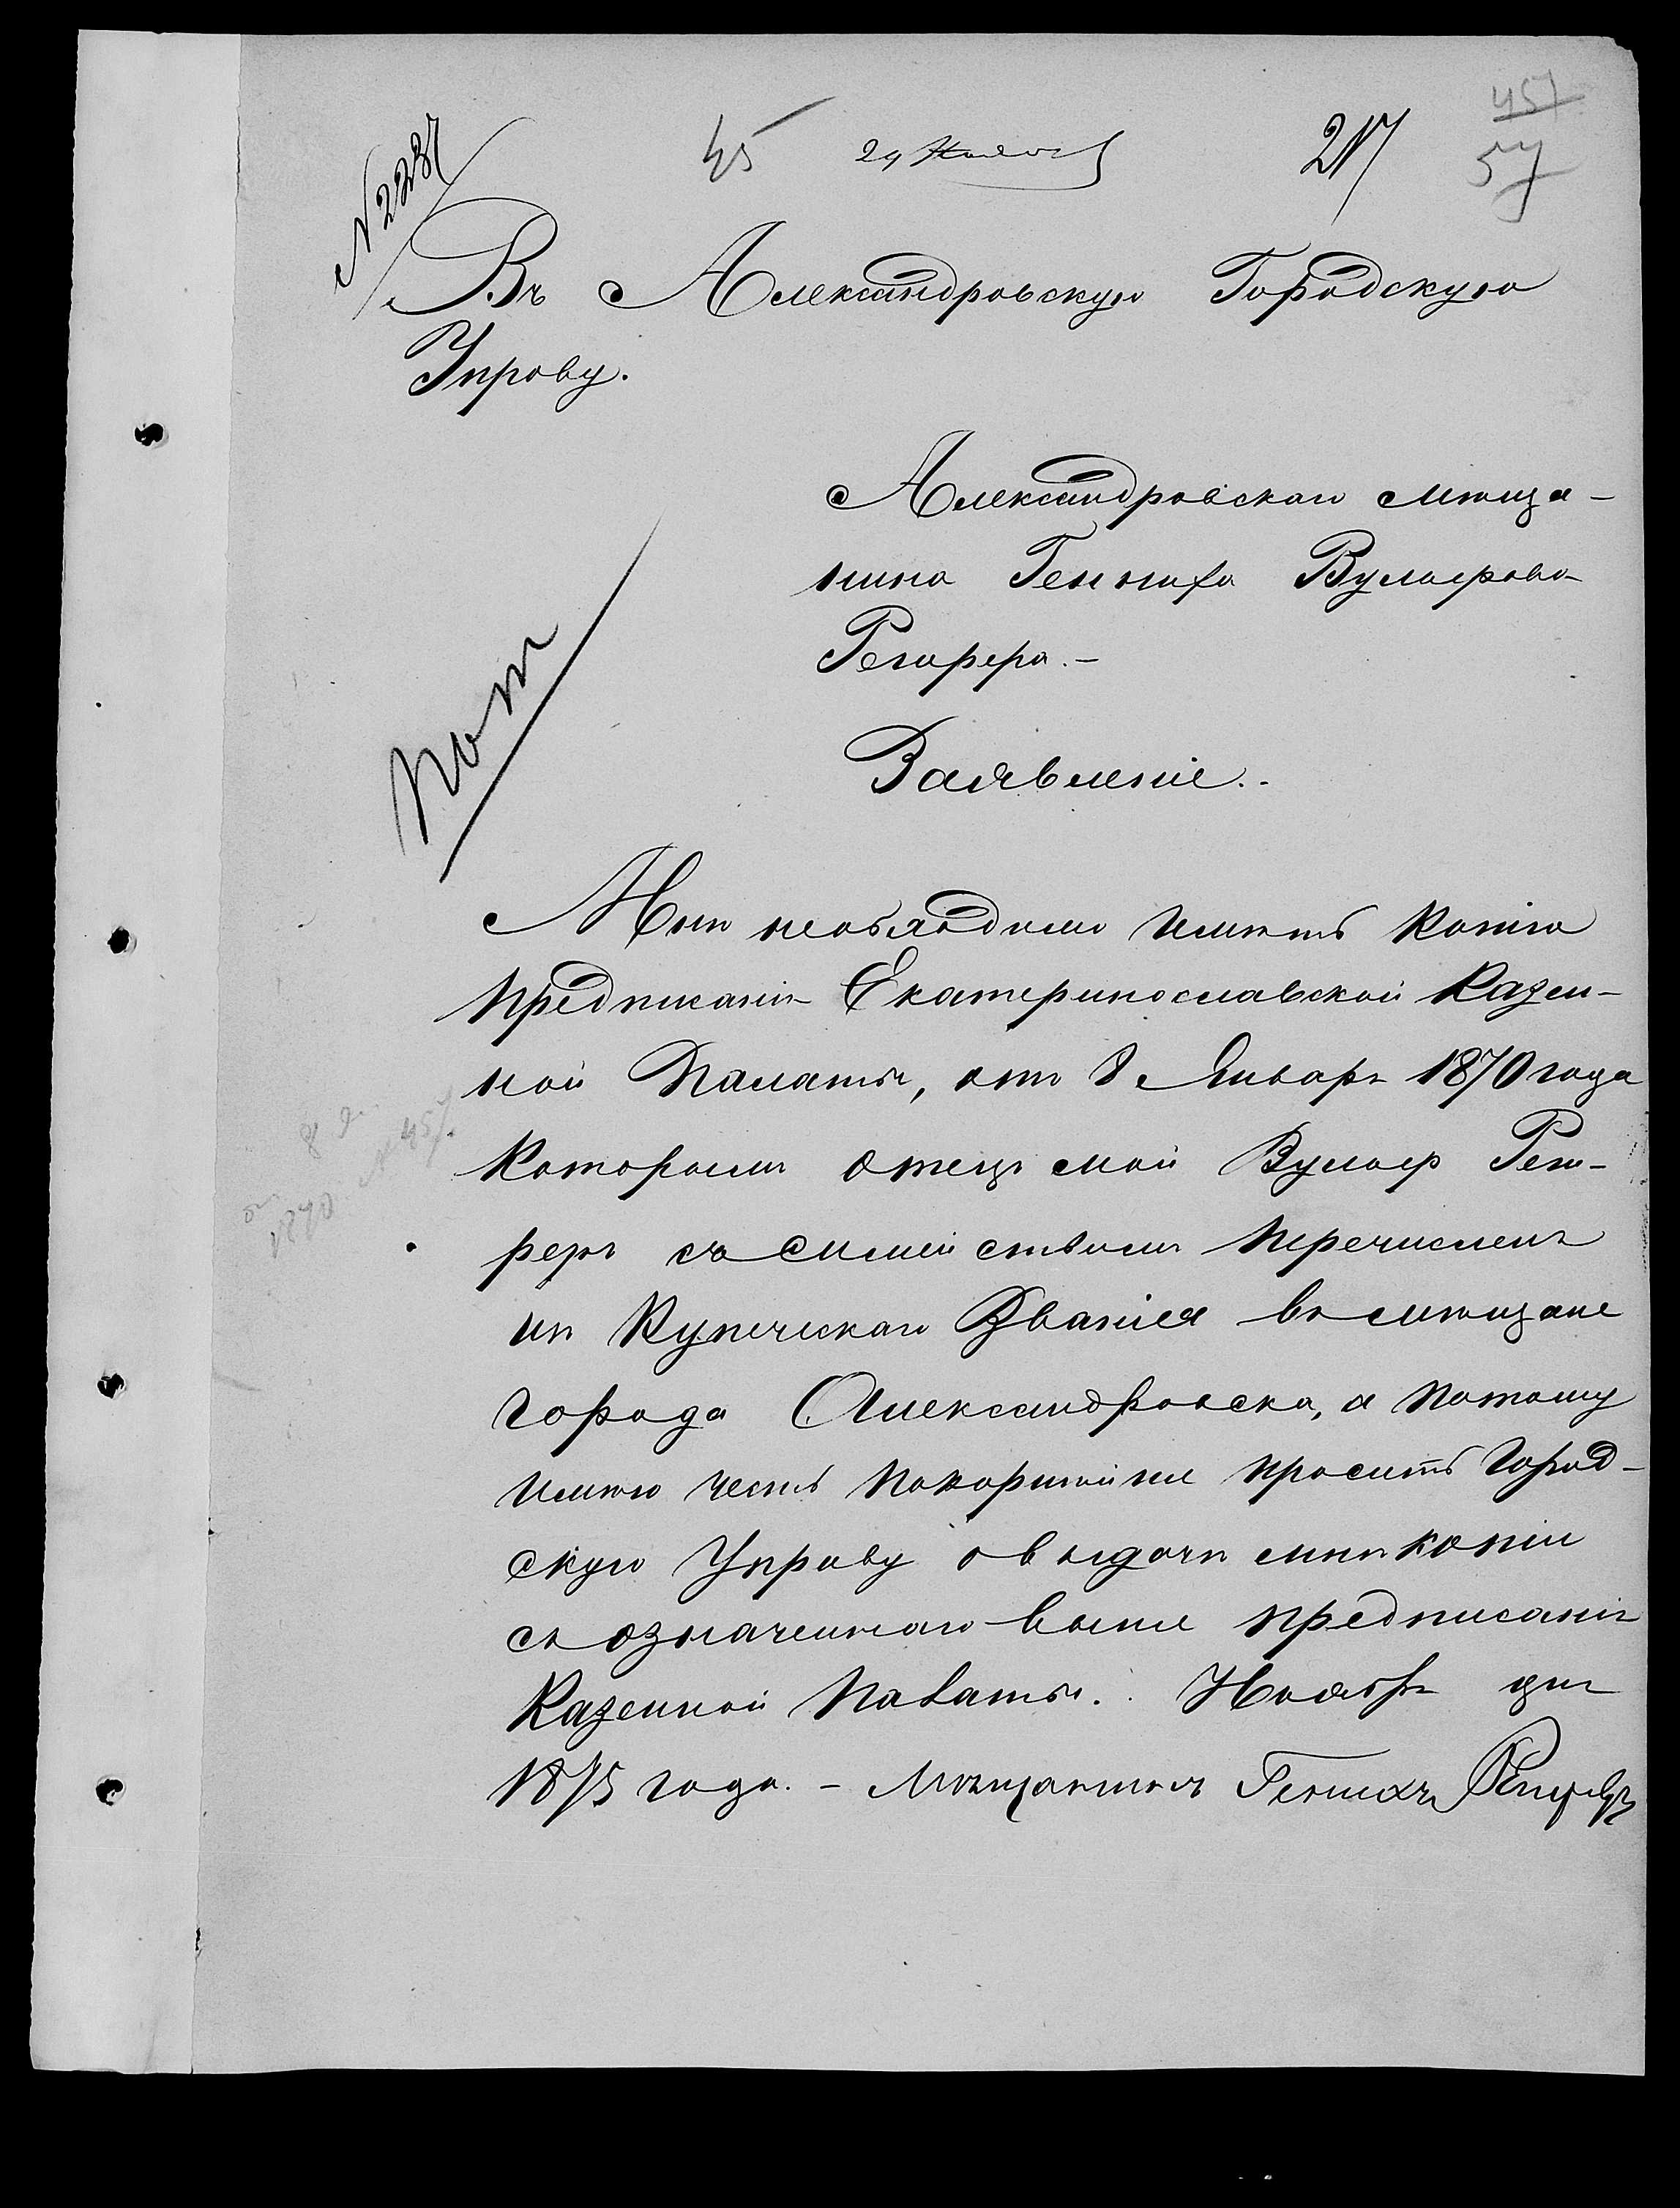 457
№ 2287 45 29 Ноября 217 57
Въ Александровскую Городскую
Управу.
Александровскаго мѣща-
нина Гениха Вульфова
Регефера.–
Заявленіе.–
пот
Мнѣ необходимо имѣть копію
предписанія Екатеринославской Казен-
ной Палаты, отъ 8 Января 1870 года
которымъ отецъ мой Вульф Реге-
феръ съ Семействомъ перечисленъ
изъ Купеческаго Званія въ мѣщане
города Александровска, а потому
имѣю честь покорнѣйше просить Город-
скую Управу о выдачѣ мнѣ копіи
съ означеннаго выше предписанія
Казенной Палаты. Ноября дня
1875 года. – Мѣщанинъ Генихъ